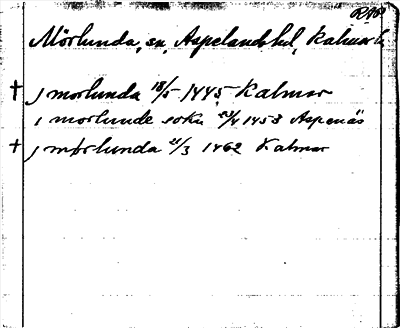 Mörlunda, sn, Aspelands hd, Kalmar l.
† j morlunda 18/5 1445 Kalmar
i morlunde sokn 23/4 1453 Aspenäs
† j mørlunda 21/3 1462 Kalmar